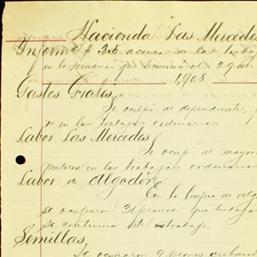 Hacienda Las Mercedes
Informe # 36 acerca de los trabaj
en la semana que termina el 29 de
1,908.
Gastos Grales.
Se ocupó de dependiente,
en los trabajos ordinarios
Labor Las Mercedes
Se ocupó al mayor
en los trabajos ordinari
Labor de Algodón
En la limpia de alg
se ocuparon 30 peones que trabaja
se continua este trabajo.
Semillas
Se ocuparon 9 peones